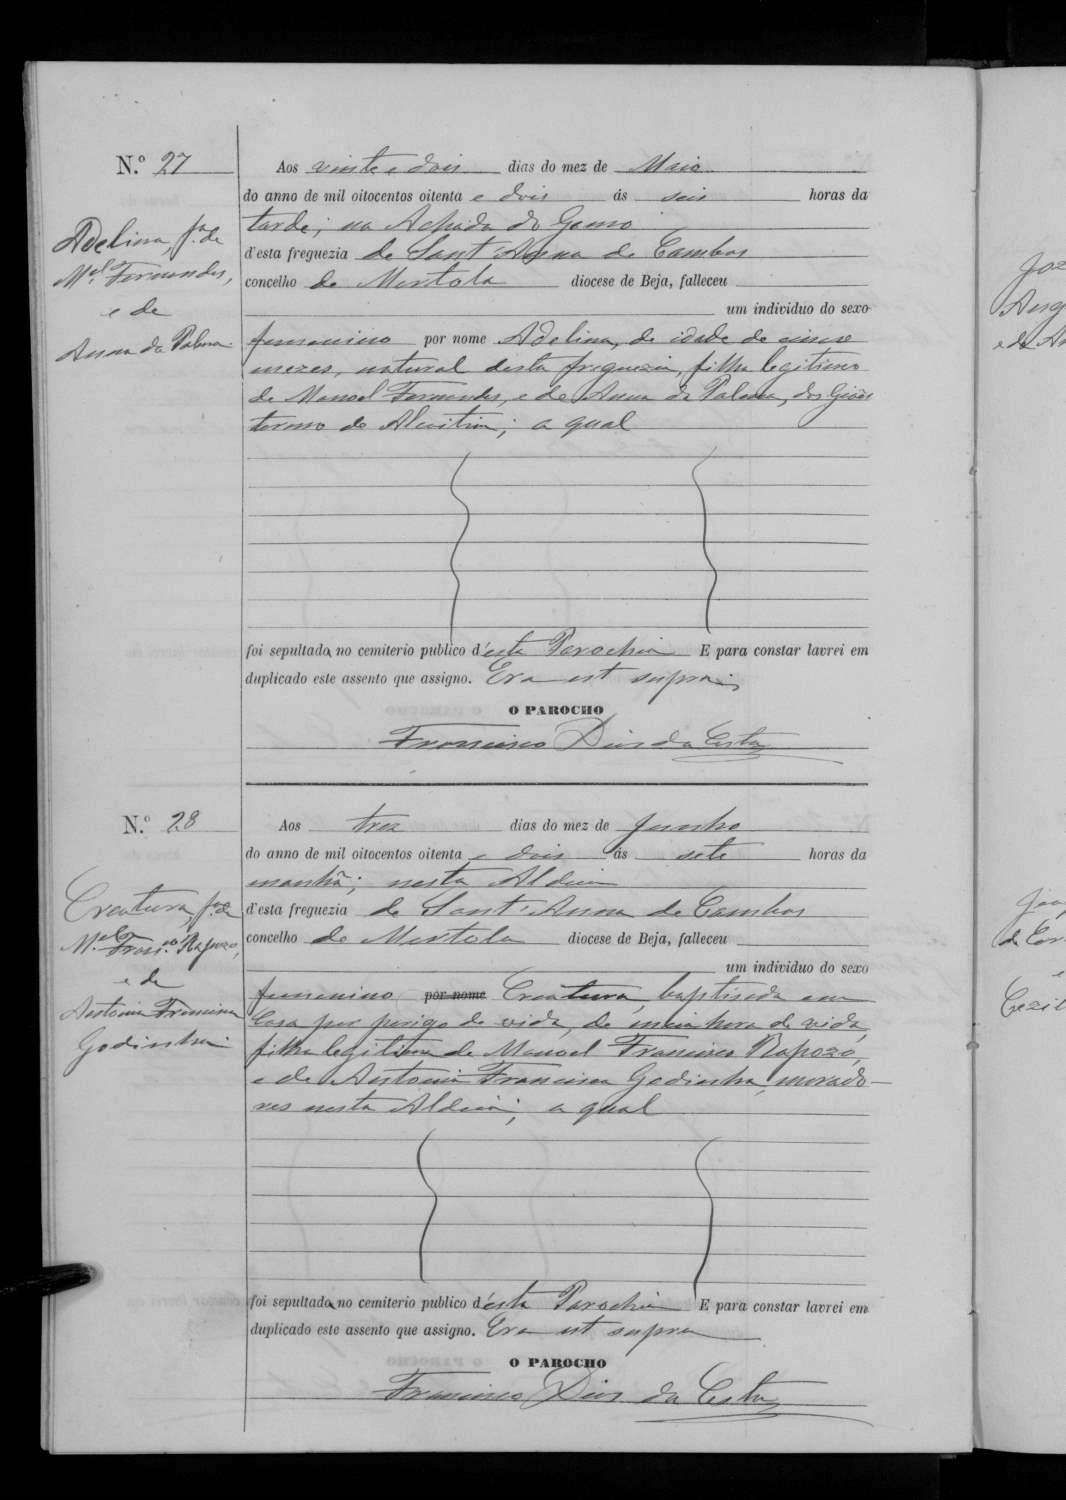 N.º 27
Adelina, f.ª de
M.el Fernandes,
e de
Anna da Palma
Aos vinte e dois dias do mez de Maio
do anno de mil oitocentos oitenta e dois ás seis horas da
tarde; na Achada do Gamo
d'esta freguezia de Sant'Anna de Cambas
concelho de Mertola diocese de Beja, falleceu
um individuo do sexo
femenino por nome Adelina, de idade de cinco
mezes, natural desta freguezia, filha legitima
de Manoel Fernandes, e de Anna da Palma, dos Giões
termo de Alcoitim; a qual
foi sepultada no cemiterio publico d'esta Parochia E para constar lavrei em
duplicado este assento que assigno. Era ut supra
O PAROCHO
Francisco Dias da Costa
N.º 28
Creatura, f.ª de
M.el Fran.co Rapozo,
e de
Antonia Francisca
Godinha
Aos trez dias do mez de Junho
do anno de mil oitocentos oitenta e dois ás sete horas da
manhã; nesta Aldeia
d'esta freguezia de Sant'Anna de Cambas
concelho de Mertola diocese de Beja, falleceu
um individuo do sexo
femenino por nome Creatura, baptisada em
Casa por perigo de vida, de meia hora de vida,
filha legitima de Manoel Francisco Rapozo,
e de Antonia Francisca Godinha, morado-
res nesta Aldeia; a qual
foi sepultada no cemiterio publico d'esta Parochia E para constar lavrei em
duplicado este assento que assigno. Era ut supra
O PAROCHO
Francisco Dias da Costa